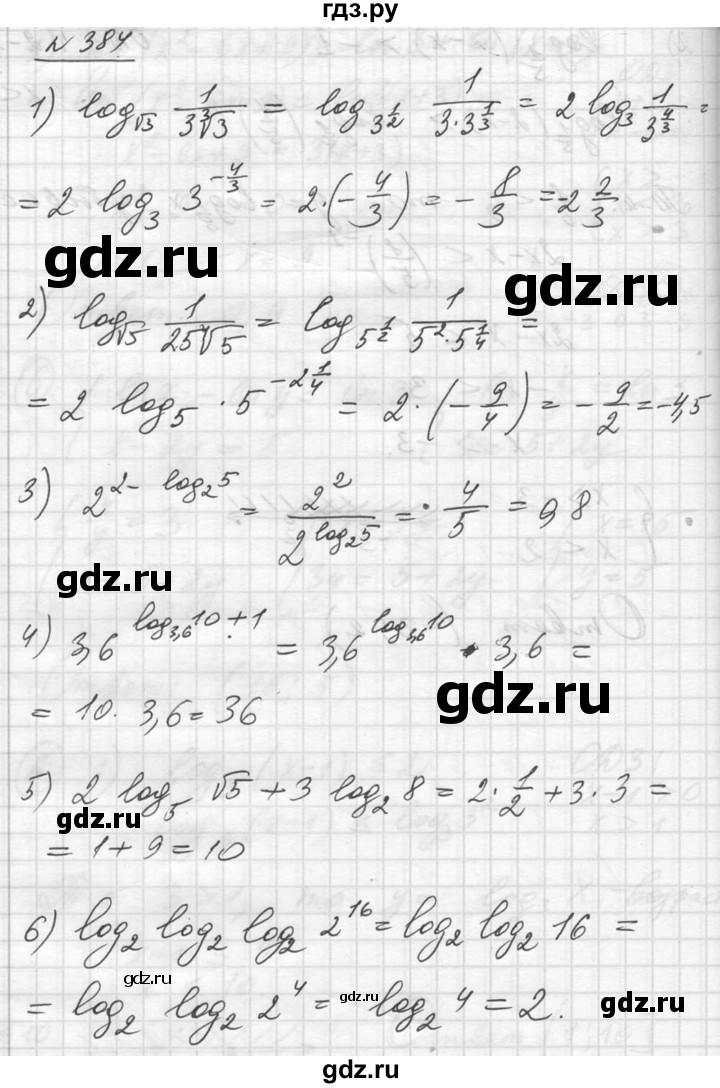 гдз.ру
N 384
1) log_√3 1/(3∛3) = log_3^(1/2) 1/(3·3^(1/3)) = 2 log_3 1/3^(4/3) =
= 2 log_3 3^(-4/3) = 2·(-4/3) = -8/3 = -2 2/3
gdz.ru
gdz.ru
2) log_√5 1/(25∜5) = log_5^(1/2) 1/(5^2·5^(1/4)) =
= 2 log_5 · 5^(-2 1/4) = 2·(-9/4) = -9/2 = -4,5
3) 2^(2 - log_2 5) = 2^2/2^(log_2 5) = · 4/5 = 0,8
gdz.ru
4) 3,6^(log_3,6 10 + 1) = 3,6^(log_3,6 10) · 3,6 =
gdz.ru
= 10 · 3,6 = 36
5) 2 log_5 √5 + 3 log_2 8 = 2 · 1/2 + 3 · 3 =
gdz.ru
= 1 + 9 = 10
6) log_2 log_2 log_2 2^16 = log_2 log_2 16 =
gdz.ru
= log_2 log_2 2^4 = log_2 4 = 2.
gdz.ru
gdz.ru
gdz.ru